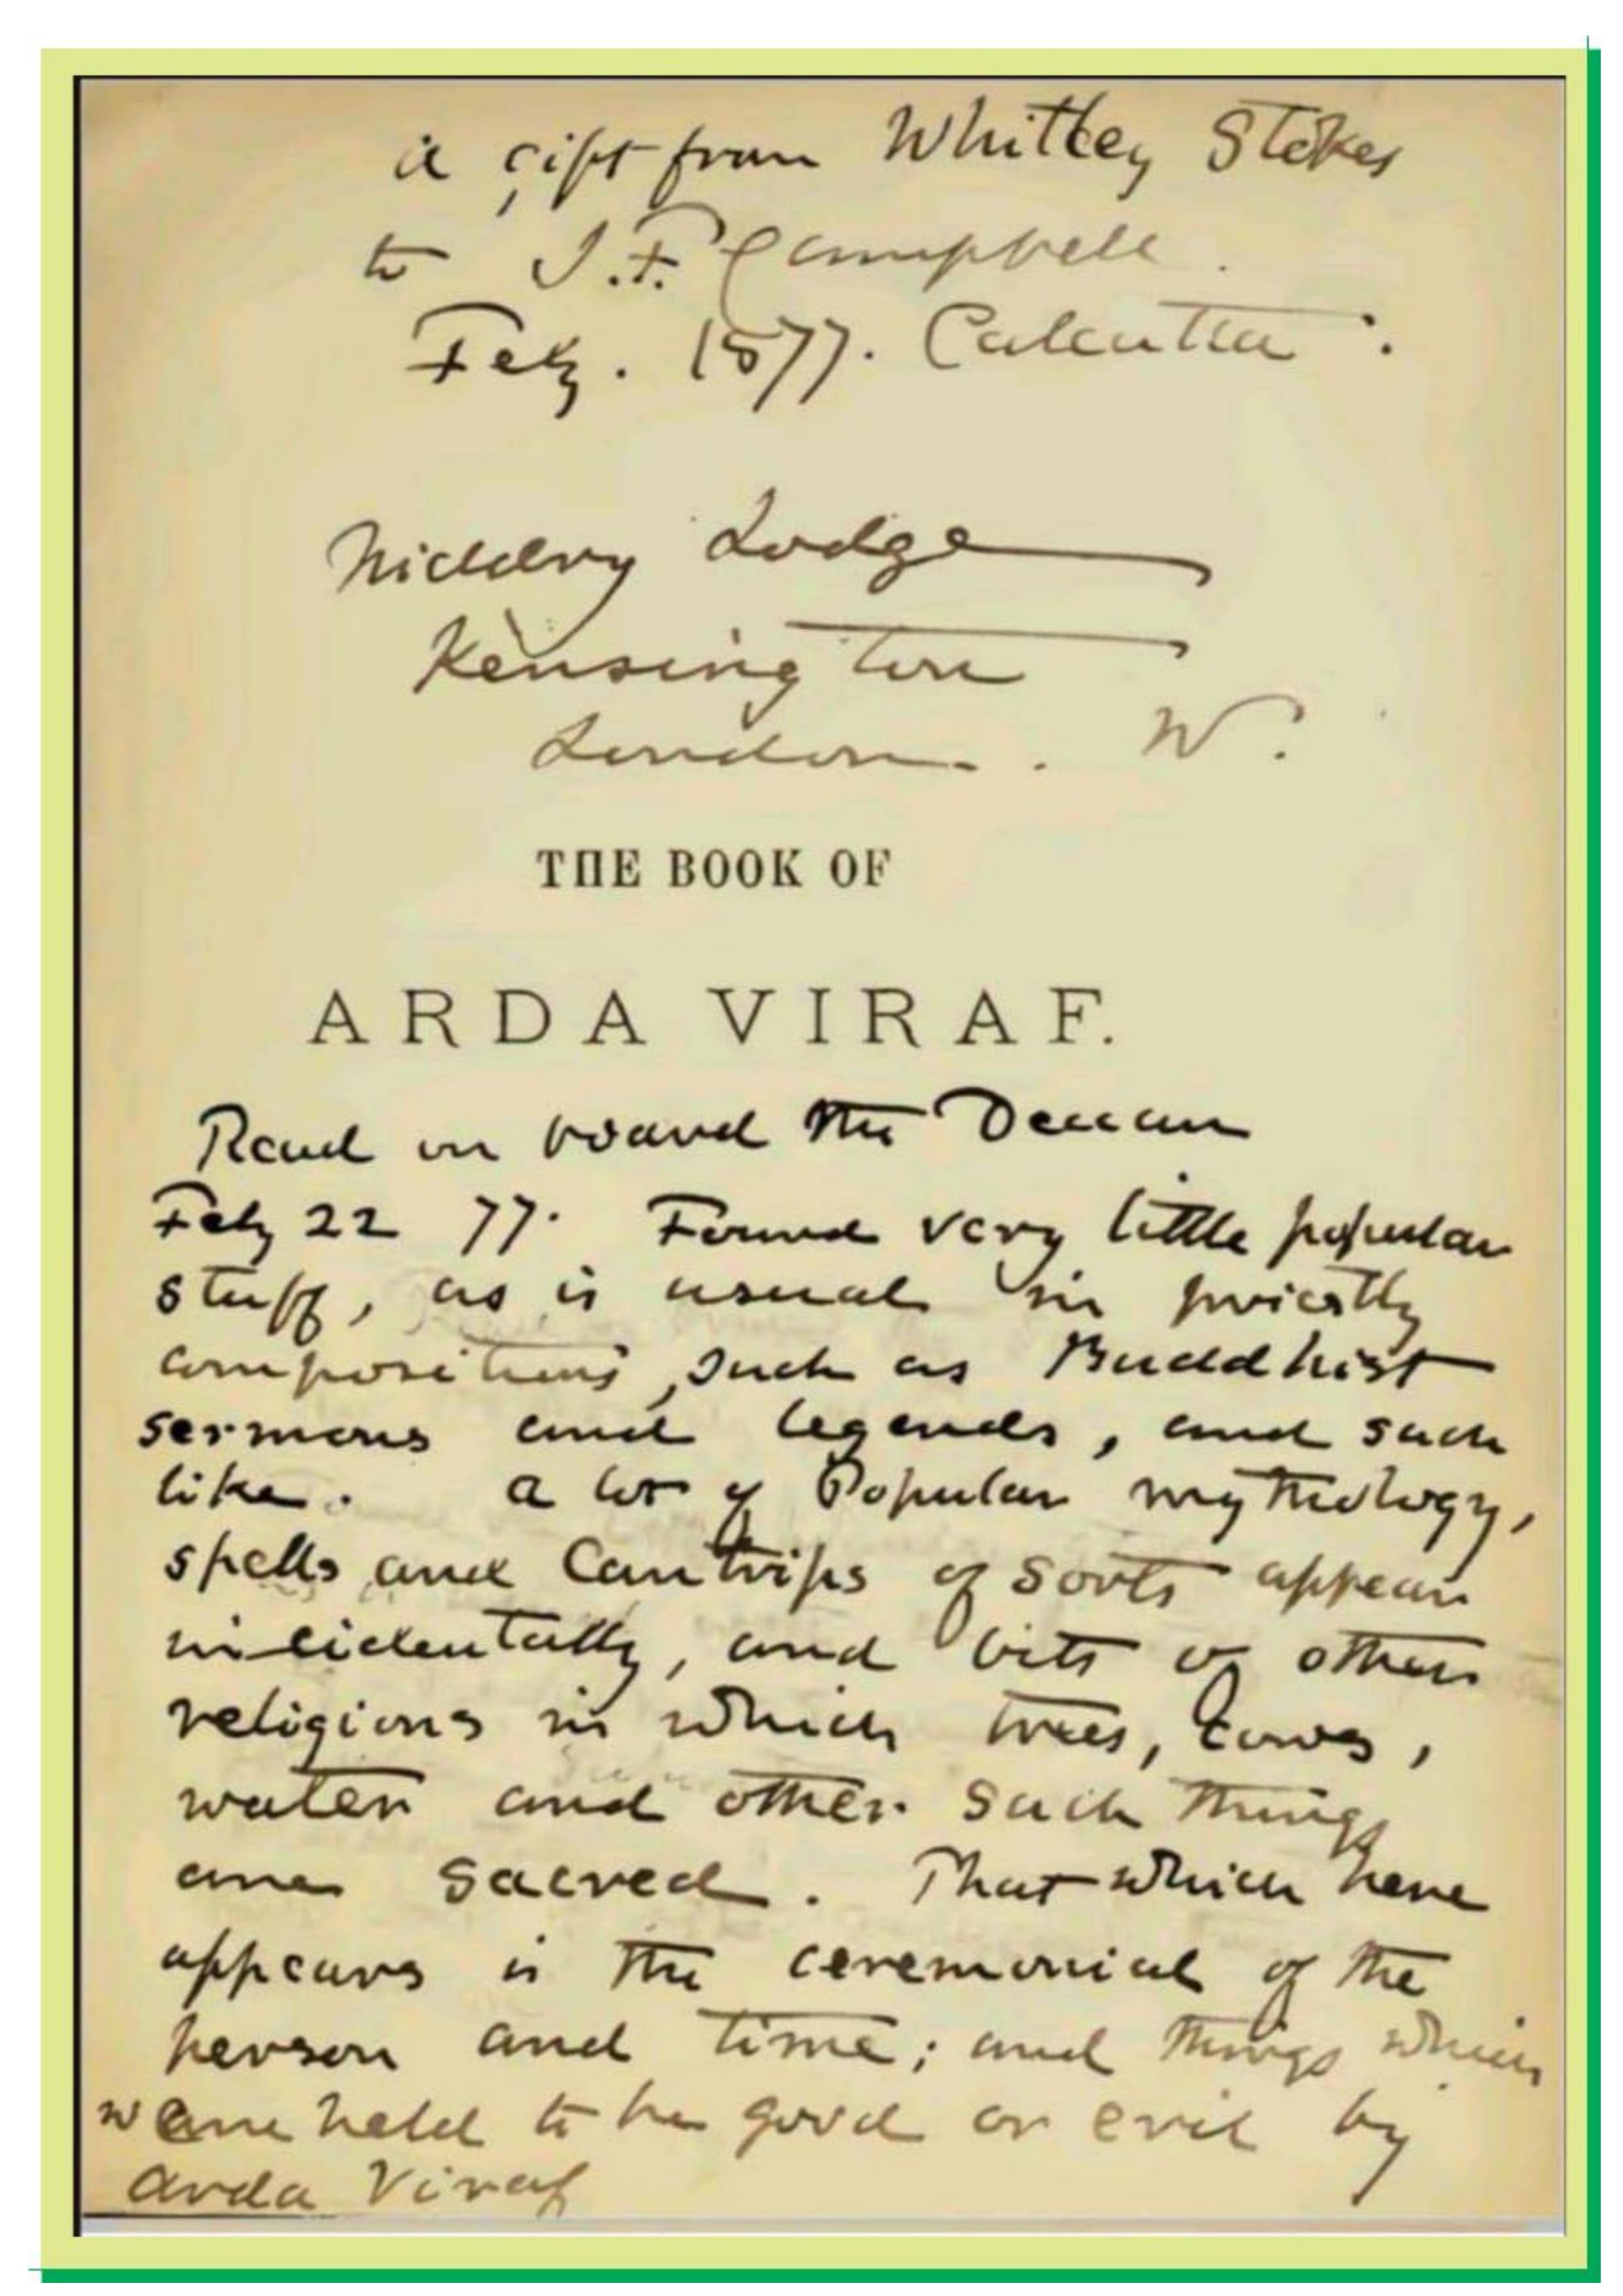 a gift from Whitley Stokes
to J.F. Campbell.
Feby. 1877. Calcutta.
Niddry Lodge
Kensington
London. W.
THE BOOK OF
ARDA VIRAF.
Read on board the Deccan
Feby 22 77. Found very little popular
stuff, as is usual in priestly
compositions, such as Buddhist
sermons and legends, and such
like. a lot of Popular mythology,
spells and Cantrips of sorts appear
incidentally, and bits of other
religions in which trees, Cows,
water and other such things
are sacred. That which here
appears is the ceremonial of the
person and time; and things which
were held to be good or evil by
Arda Viraf